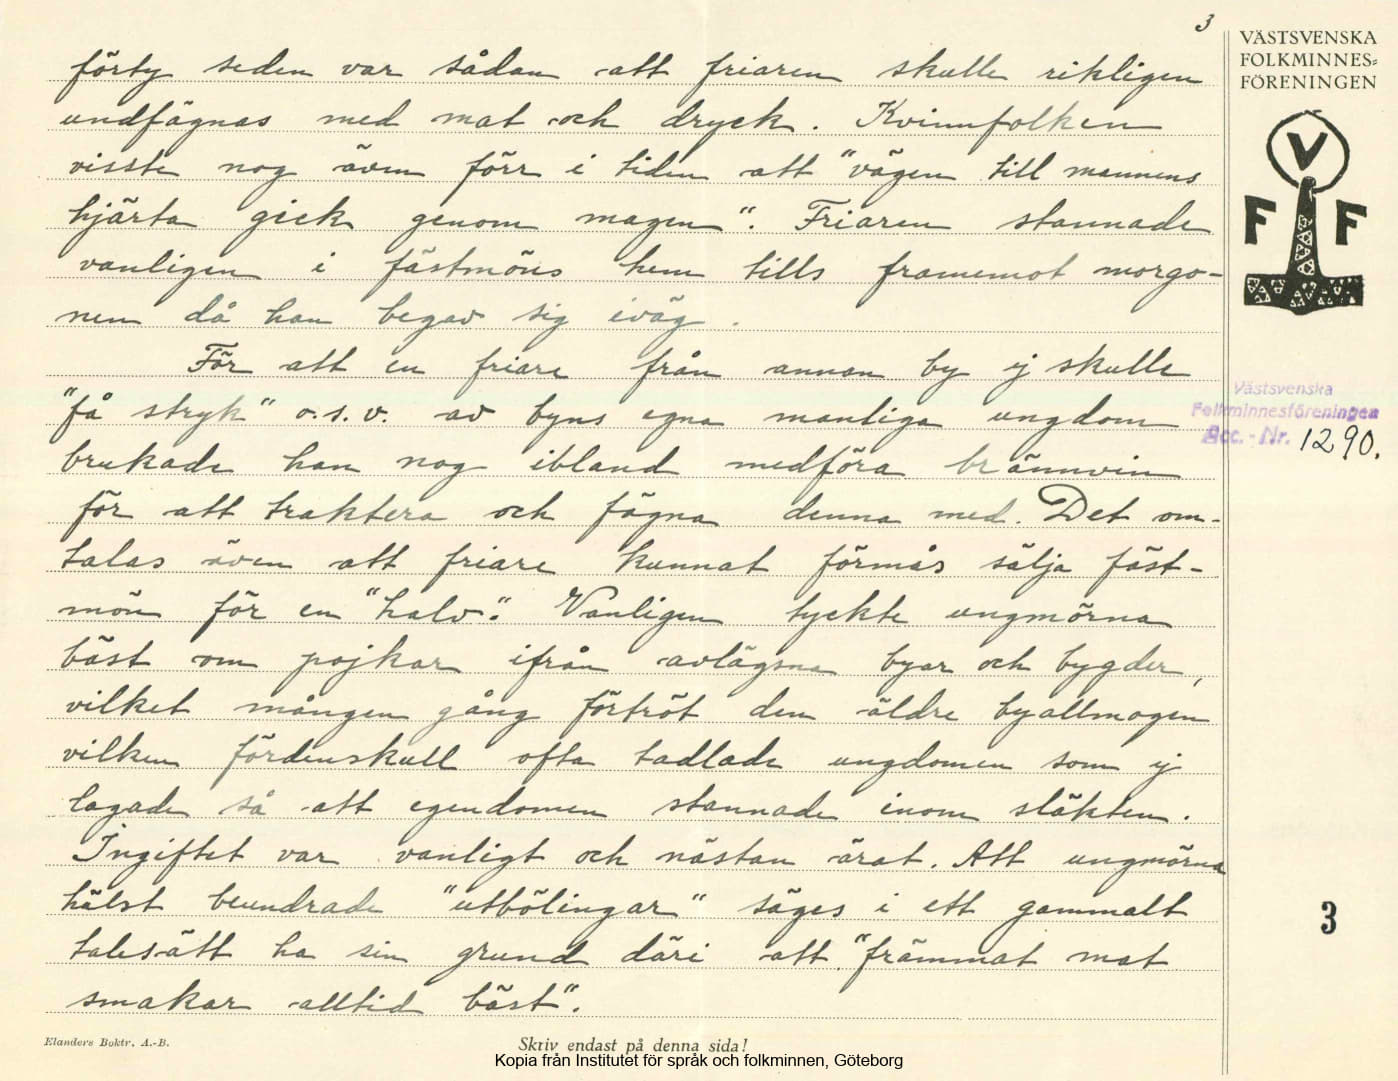 3
förty seden var sådan att friaren skulle rikligen
undfägnas med mat och dryck. Kvinnfolken
visste nog även förr i tiden att "vägen till mannens
hjärta gick genom magen". Friaren stannade
vanligen i fästmöns hem tills framemot morgo-
nen då han begav sig iväg.
För att en friare från annan by ej skulle
"få stryk" o.s.v. av byns egna manliga ungdom
brukade han nog ibland medföra brännvin
för att traktera och fägna denna med. Det om-
talas även att friare kunnat förmås sälja fäst-
mön för en "halv". Vanligen tyckte ungmörna
bäst om pojkar ifrån avlägsna byar och bygder,
vilket mången gång förtröt den äldre byallmogen
vilken fördenskull ofta tadlade ungdomen som ej
lagade så att egendomen stannade inom släkten.
Ingiftet var vanligt och nästan ärat. Att ungmörna
hälst beundrade "utbölingar" säges i ett gammalt
talesätt ha sin grund däri att "främmat mat
smakar alltid bäst".
VÄSTSVENSKA
FOLKMINNES=
FÖRENINGEN
V
F F
Västsvenska
Folkminnesföreningen
Acc. - Nr. 1290.
3
Elanders Boktr. A.-B.
Skriv endast på denna sida!
Kopia från Institutet för språk och folkminnen, Göteborg